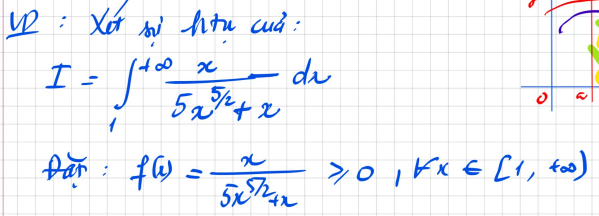 VD : Xét sự htụ của:
I = ∫₁^{+∞} x / (5x^{5/2} + x) dx
Đặt : f(x) = x / (5x^{5/2} + x) ⩾ 0 , ∀x ∈ [1, +∞)
0 a